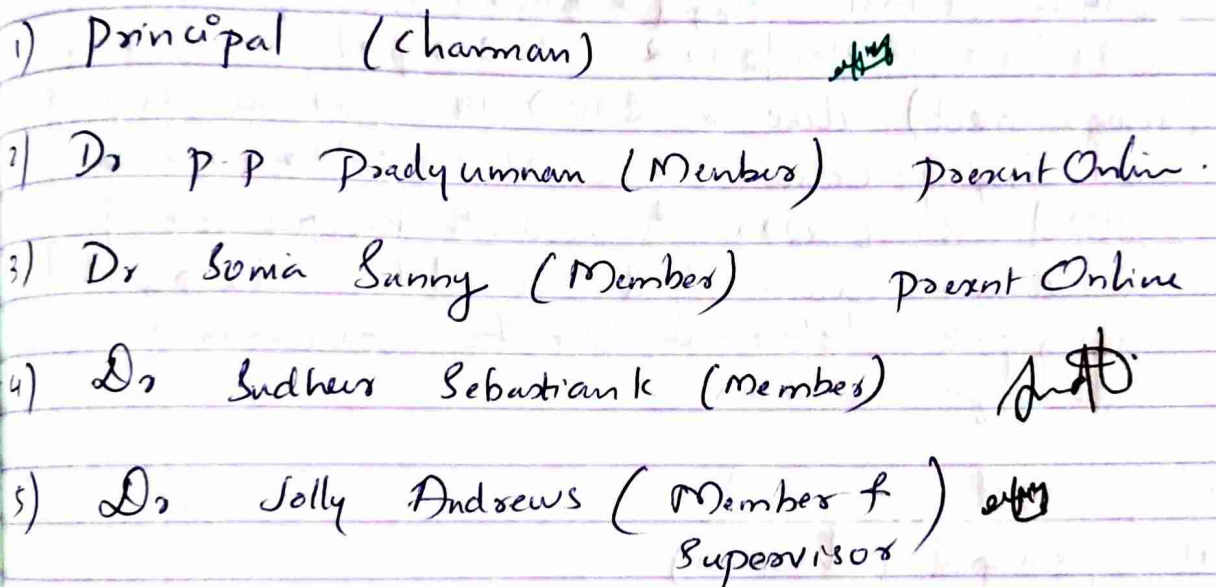 1) Principal (Chairman)
2) Dr P.P Pradyumnan (Member) Present Online.
3) Dr Sonia Sunny (Member) Present Online
4) Dr Sudheer Sebastian k (Member)
5) Dr Jolly Andrews (Member &
Supervisor)